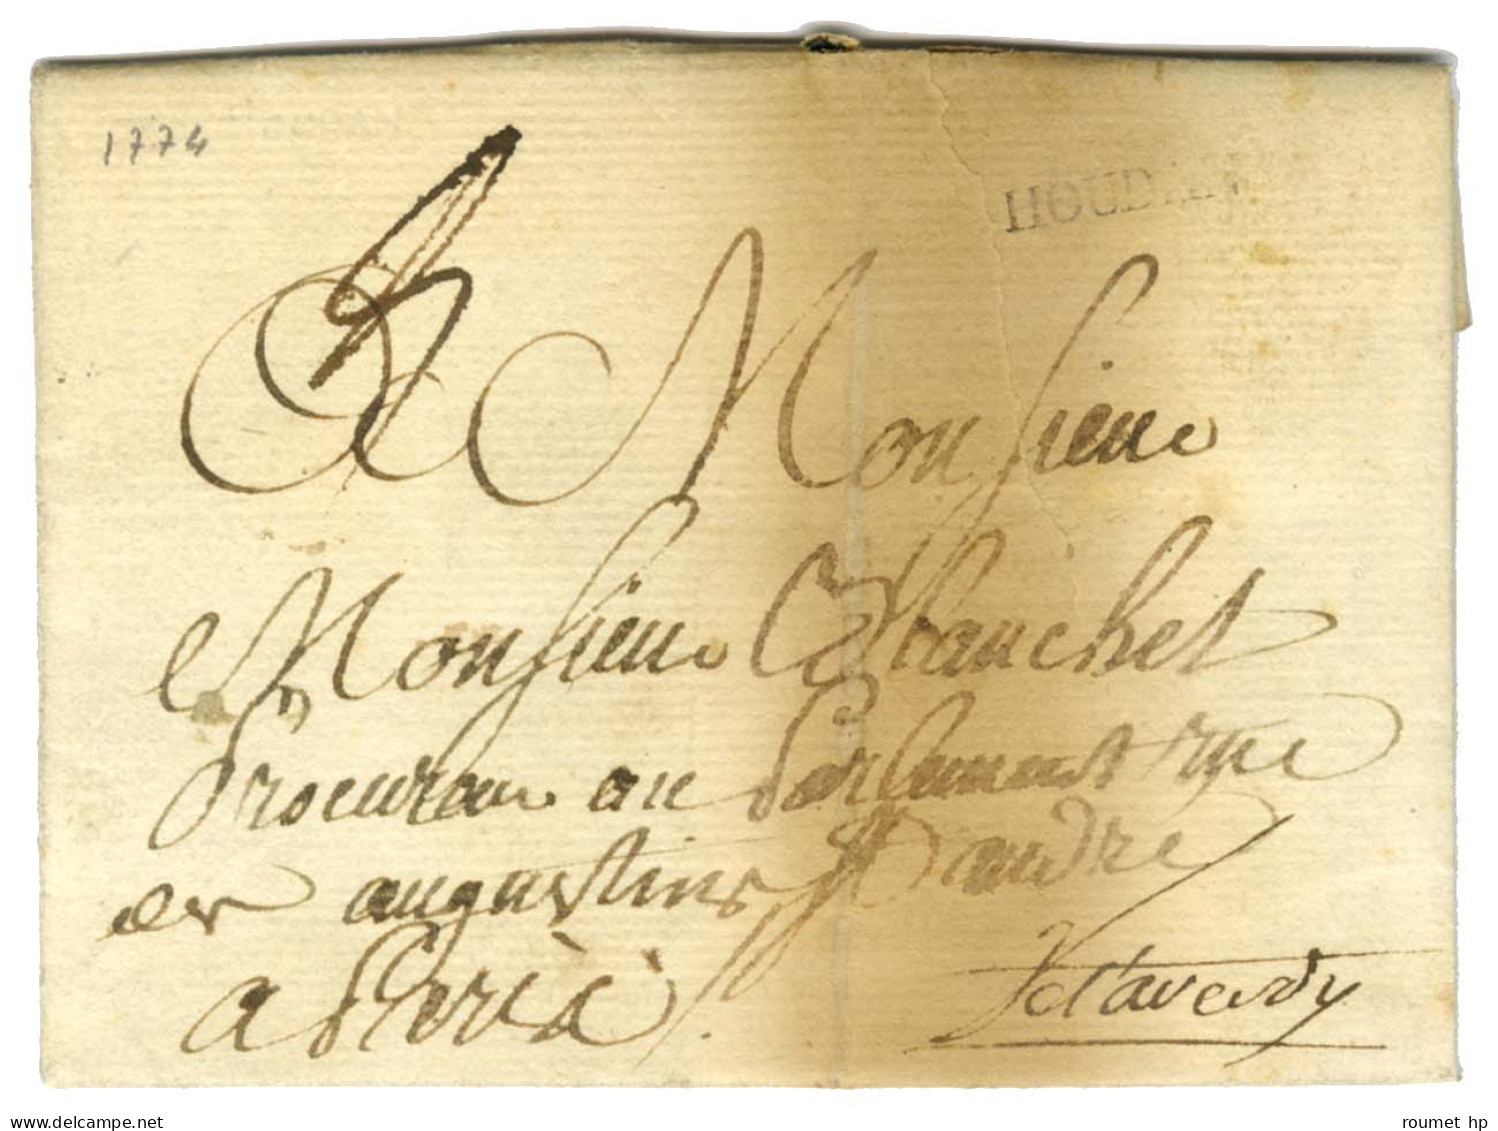 1774
HOUDAN
A Monsieur
Monsieur Blanchet
Procureur au Parlement rue
des augustins St andré
a Paris
delaverdy
www.delcampe.net
roumet hp